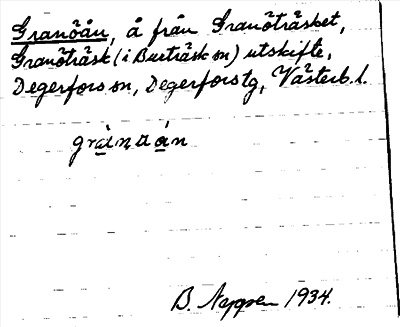 Granöån, å från Granöträsket,
Granöträsk (i Burträsk sn) utskifte,
Degerfors sn, Degerfors tg, Västerb. l.
B. Nygren 1934.